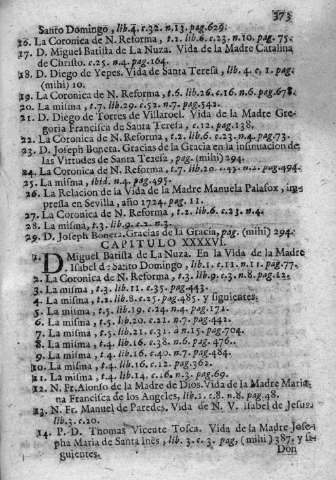 373
Santo Domingo, lib.4. c.32. n.13. pag.629.
16. La Coronica de N. Reforma, t.2. lib.6. c.23. n.10. pag. 75.
17. D. Miguel Batista de La Nuza. Vida de la Madre Catalina
de Christo. c.25. n.4. pag.164.
18. D. Diego de Yepes. Vida de Santa Teresa, lib.4. c. 1. pag.
(mihi) 10.
19. La Coronica de N. Reforma, t.6. lib.26. c.16. n.6. pag.678.
20. La misma, t.7. lib.29. c.51. n.7. pag.542.
21. D. Diego de Torres de Villaroel. Vida de la Madre Gre-
goria Francisca de Santa Teresa, c.12. pag.138.
22. La Coronica de N. Reforma, t.2. lib.6. c.23. n.4. pag.73.
23. D. Joseph Bonera. Gracias de la Gracia en la insinuacion de
las Virtudes de Santa Teresa, pag. (mihi) 294.
24. La Coronica de N. Reforma, t.7. lib.20. n.4. pag.494.
25. La misma, ibid. n.4. pag.495.
26. La Relacion de la Vida de la Madre Manuela Palafox, im-
pressa en Sevilla, año 1724. pag. 11.
27. La Coronica de N. Reforma, t.2. lib.6. c.23. n.4.
28. La misma, t.3. lib.9. c.2. n.3.
29. D. Joseph Bonera. Gracias de la Gracia, pag. (mihi) 294.
CAPITULO XXXXVI.
1. D Miguel Batista de La Nuza. En la Vida de la Madre
Isabel de Santo Domingo, lib.1. c.11. n.11. pag.77.
2. La Coronica de N. Reforma, t.3. lib.9. c.3. n.8. pag.12.
3. La misma, t.3. lib.11. c.35. pag.443.
4. La misma, t.2. lib.8. c.25. pag.485. y siguientes.
5. La misma, t.5. lib.19. c.24. n.4. pag.172.
6. La misma, t.5. lib.20. c.21. n.7. pag.441.
7. La misma, t.5. lib.21. c.31. à n.15. pag.704.
8. La misma, t.4. lib.16. c.38. n.6. pag.476.
9. La misma, t.4. lib.16. c.40. n.7. pag.484.
10. La misma, t.4. lib.16. c.12. pag.362.
11. La misma, t.4. lib.14. c.16. n.3. pag.69.
12. N. Fr. Alonso de la Madre de Dios. Vida de la Madre Maria-
na Francisca de los Angeles, lib.1. c.8. n.8. pag.48.
13. N. Fr. Manuel de Paredes. Vida de N. V. Isabel de Jesus
lib.3. c.20.
14. P. D. Thomas Vicente Tosca. Vida de la Madre Jose-
pha Maria de Santa Inès, lib. 3. c. 3. pag. (mihi) 387. y si-
guientes.
Don